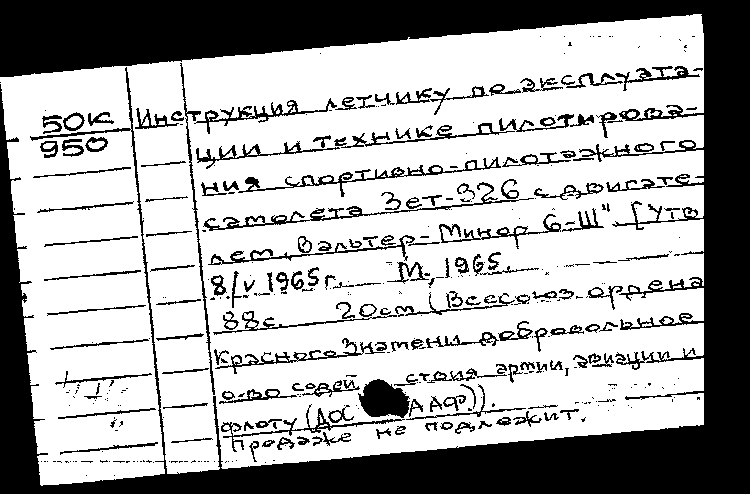 50К
950
Инструкция летчику по эксплуата-
ции и технике пилотирова-
ния спортивно-пилотажного
самолета Зет-326 с двигате-
лем „Вальтер-Минор 6-III". [Утв
8/V 1965г. М., 1965.
88с. 20см (Всесоюз. ордена
Красного Знамени добровольное
о-во содей стоия армии, авиации и
флоту (ДОС ААФ)).
Продаже не подлежит.